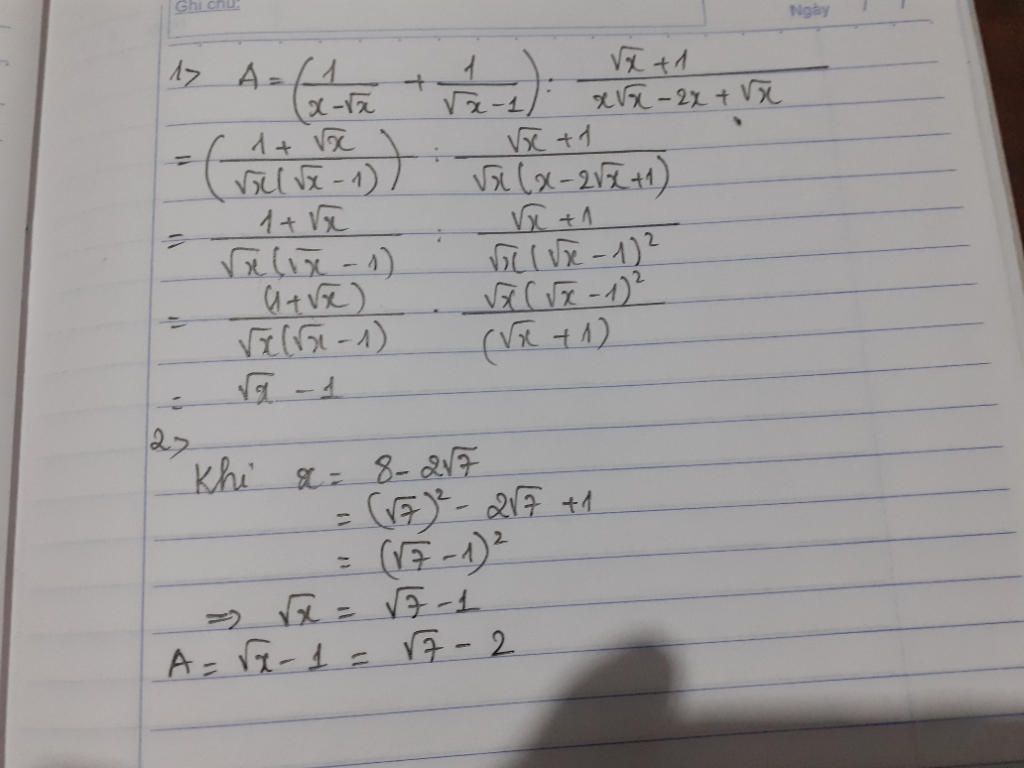 Ghi chú:
Ngày / /
1> A = (1/(x-√x) + 1/(√x-1)) : (√x+1)/(x√x-2x+√x)
= ((1+√x)/(√x(√x-1))) : (√x+1)/(√x(x-2√x+1))
= (1+√x)/(√x(√x-1)) : (√x+1)/(√x(√x-1)²)
= (1+√x)/(√x(√x-1)) . √x(√x-1)²/(√x+1)
= √x - 1
2>
Khi x = 8-2√7
= (√7)² - 2√7 +1
= (√7-1)²
=> √x = √7-1
A = √x-1 = √7-2